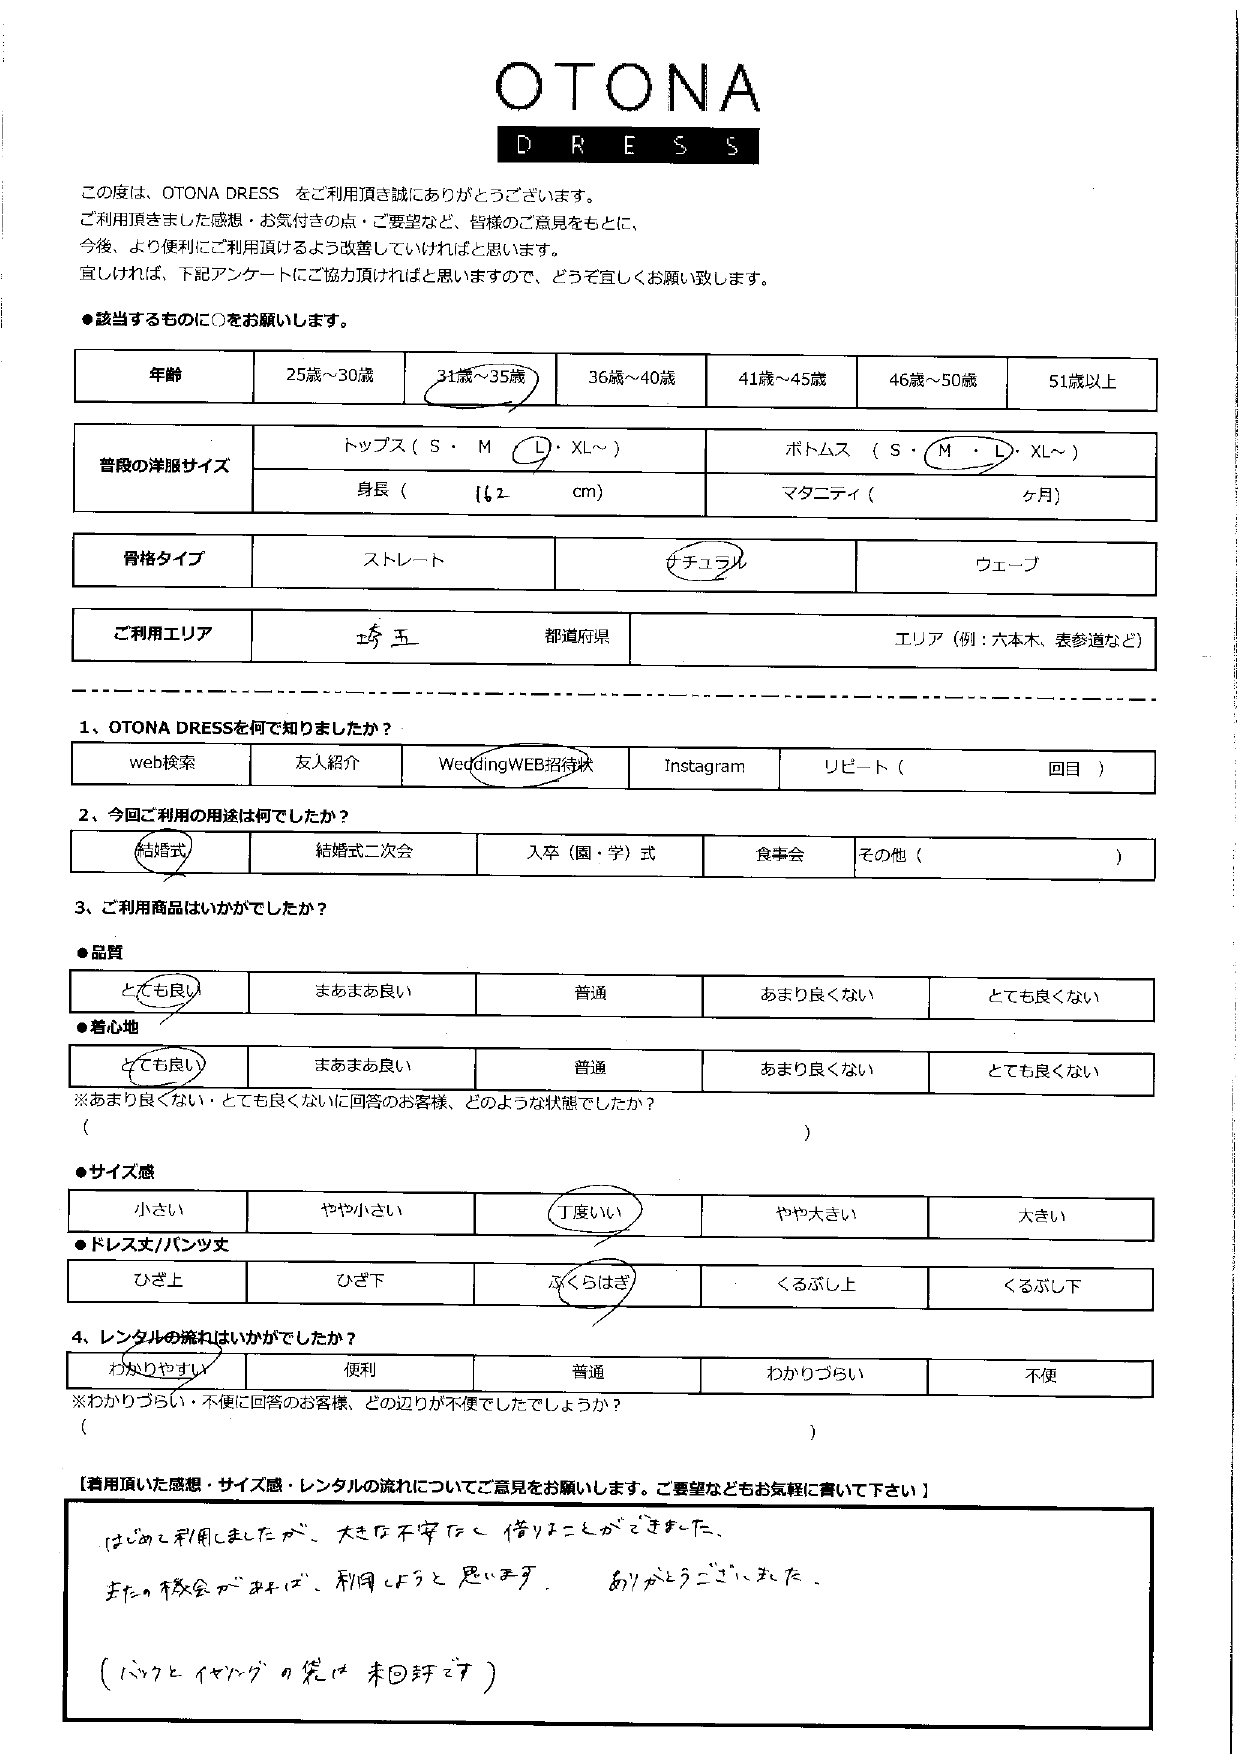 OTONA
DRESS
この度は、OTONA DRESS をご利用頂き誠にありがとうございます。
ご利用頂きました感想・お気付きの点・ご要望など、皆様のご意見をもとに、
今後、より便利にご利用頂けるよう改善していければと思います。
宜しければ、下記アンケートにご協力頂ければと思いますので、どうぞ宜しくお願い致します。
●該当するものに○をお願いします。
年齢 25歳～30歳 31歳～35歳 36歳～40歳 41歳～45歳 46歳～50歳 51歳以上
普段の洋服サイズ トップス ( S ・ M ・ L ・ XL～ ) ボトムス ( S ・ M ・ L ・ XL～ )
身長 ( 162 cm) マタニティ ( ヶ月)
骨格タイプ ストレート ナチュラル ウェーブ
ご利用エリア 埼玉 都道府県 エリア（例：六本木、表参道など）
1、OTONA DRESSを何で知りましたか？
web検索 友人紹介 WeddingWEB招待状 Instagram リピート ( 回目 )
2、今回ご利用の用途は何でしたか？
結婚式 結婚式二次会 入卒（園・学）式 食事会 その他 ( )
3、ご利用商品はいかがでしたか？
●品質
とても良い まあまあ良い 普通 あまり良くない とても良くない
●着心地
とても良い まあまあ良い 普通 あまり良くない とても良くない
※あまり良くない・とても良くないに回答のお客様、どのような状態でしたか？
( )
●サイズ感
小さい やや小さい 丁度いい やや大きい 大きい
●ドレス丈/パンツ丈
ひざ上 ひざ下 ふくらはぎ くるぶし上 くるぶし下
4、レンタルの流れはいかがでしたか？
わかりやすい 便利 普通 わかりづらい 不便
※わかりづらい・不便に回答のお客様、どの辺りが不便でしたでしょうか？
( )
【着用頂いた感想・サイズ感・レンタルの流れについてご意見をお願いします。ご要望などもお気軽に書いて下さい】
はじめて利用しましたが、大きな不安なく借りることができました。
またの機会があれば、利用しようと思います。 ありがとうございました。
(バックとイヤリングの袋は未開封です)